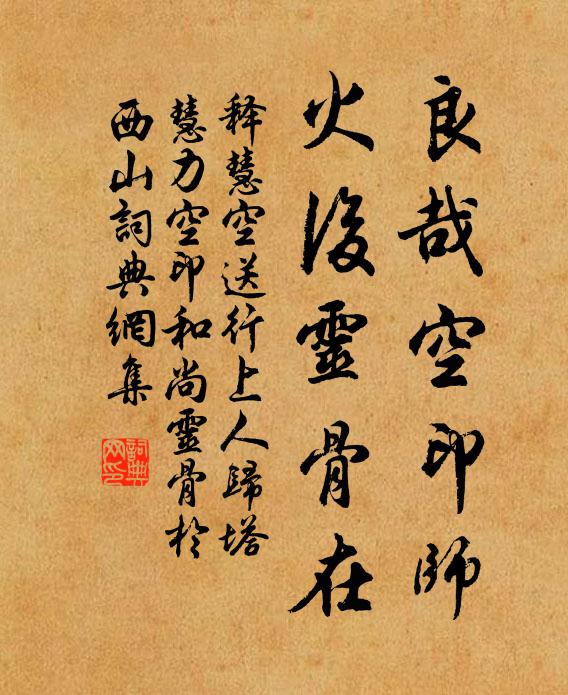 良哉空印師
火後靈骨在
释慧空送行上人歸塔
慧力空印和尚靈骨於
西山詞典網集
詞典网印